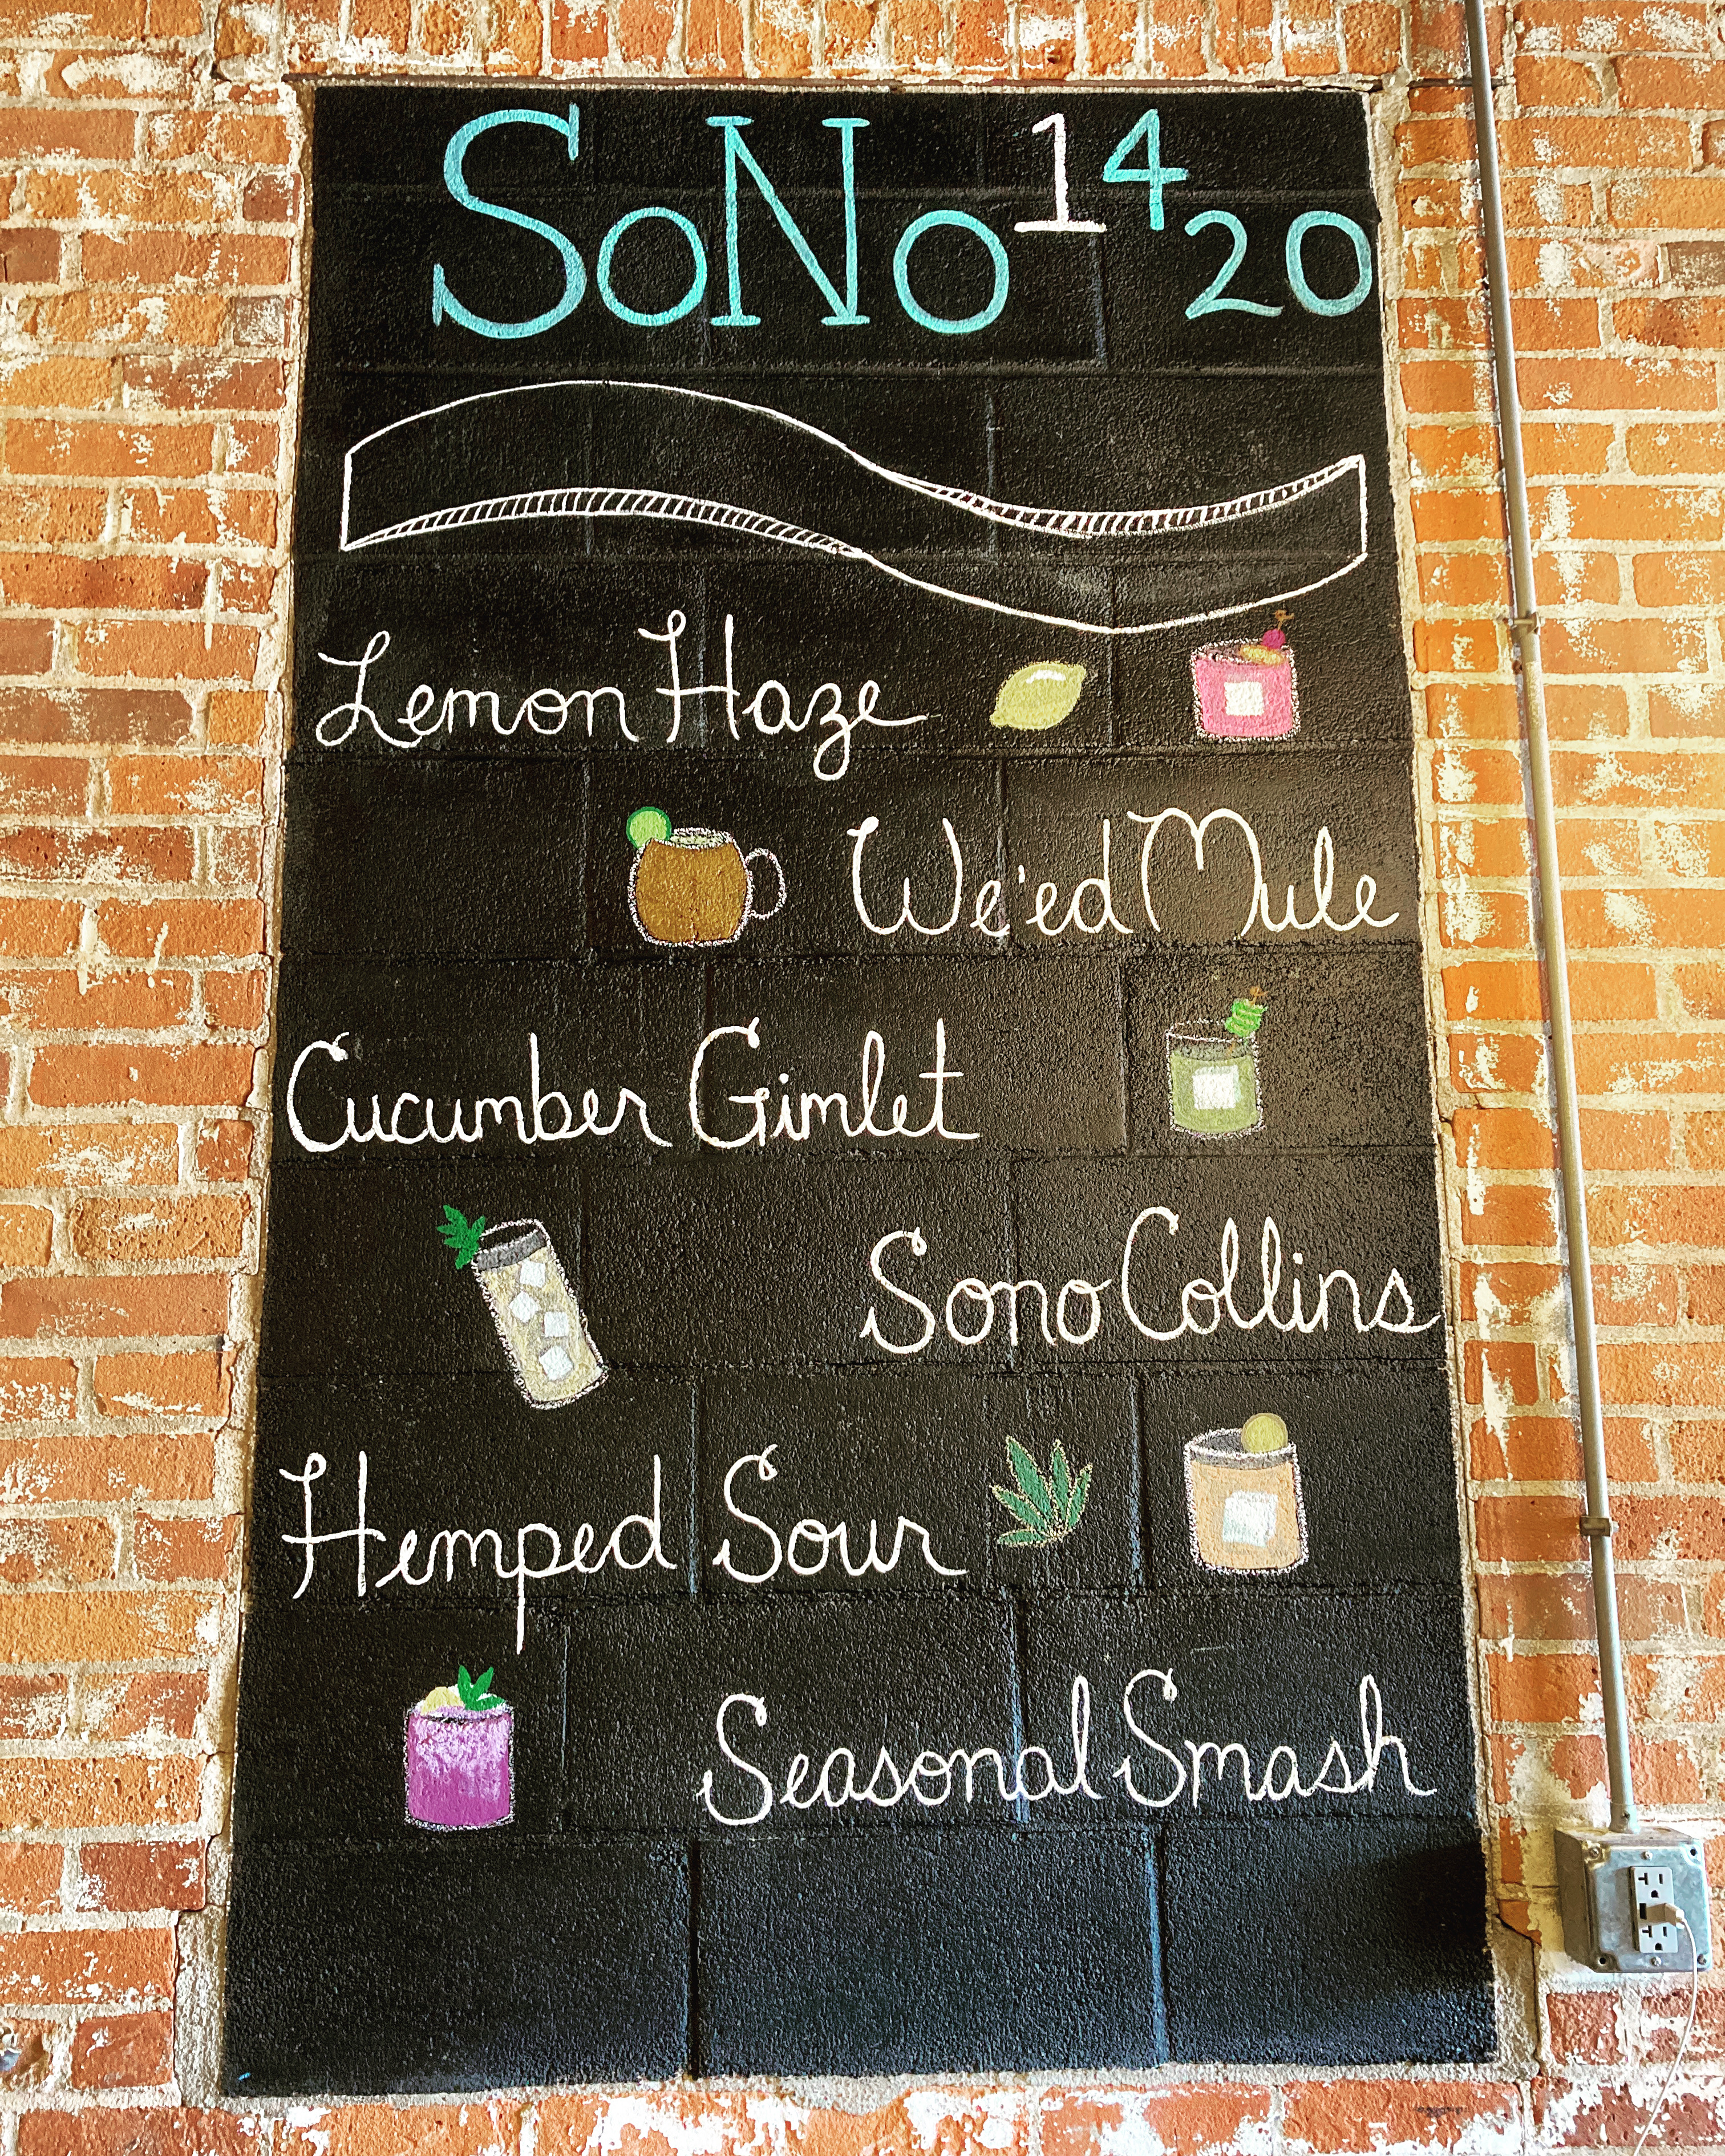 SoNo 1420
Lemon Haze
We'ed Mule
Cucumber Gimlet
Sono Collins
Hemped Sour
Seasonal Smash